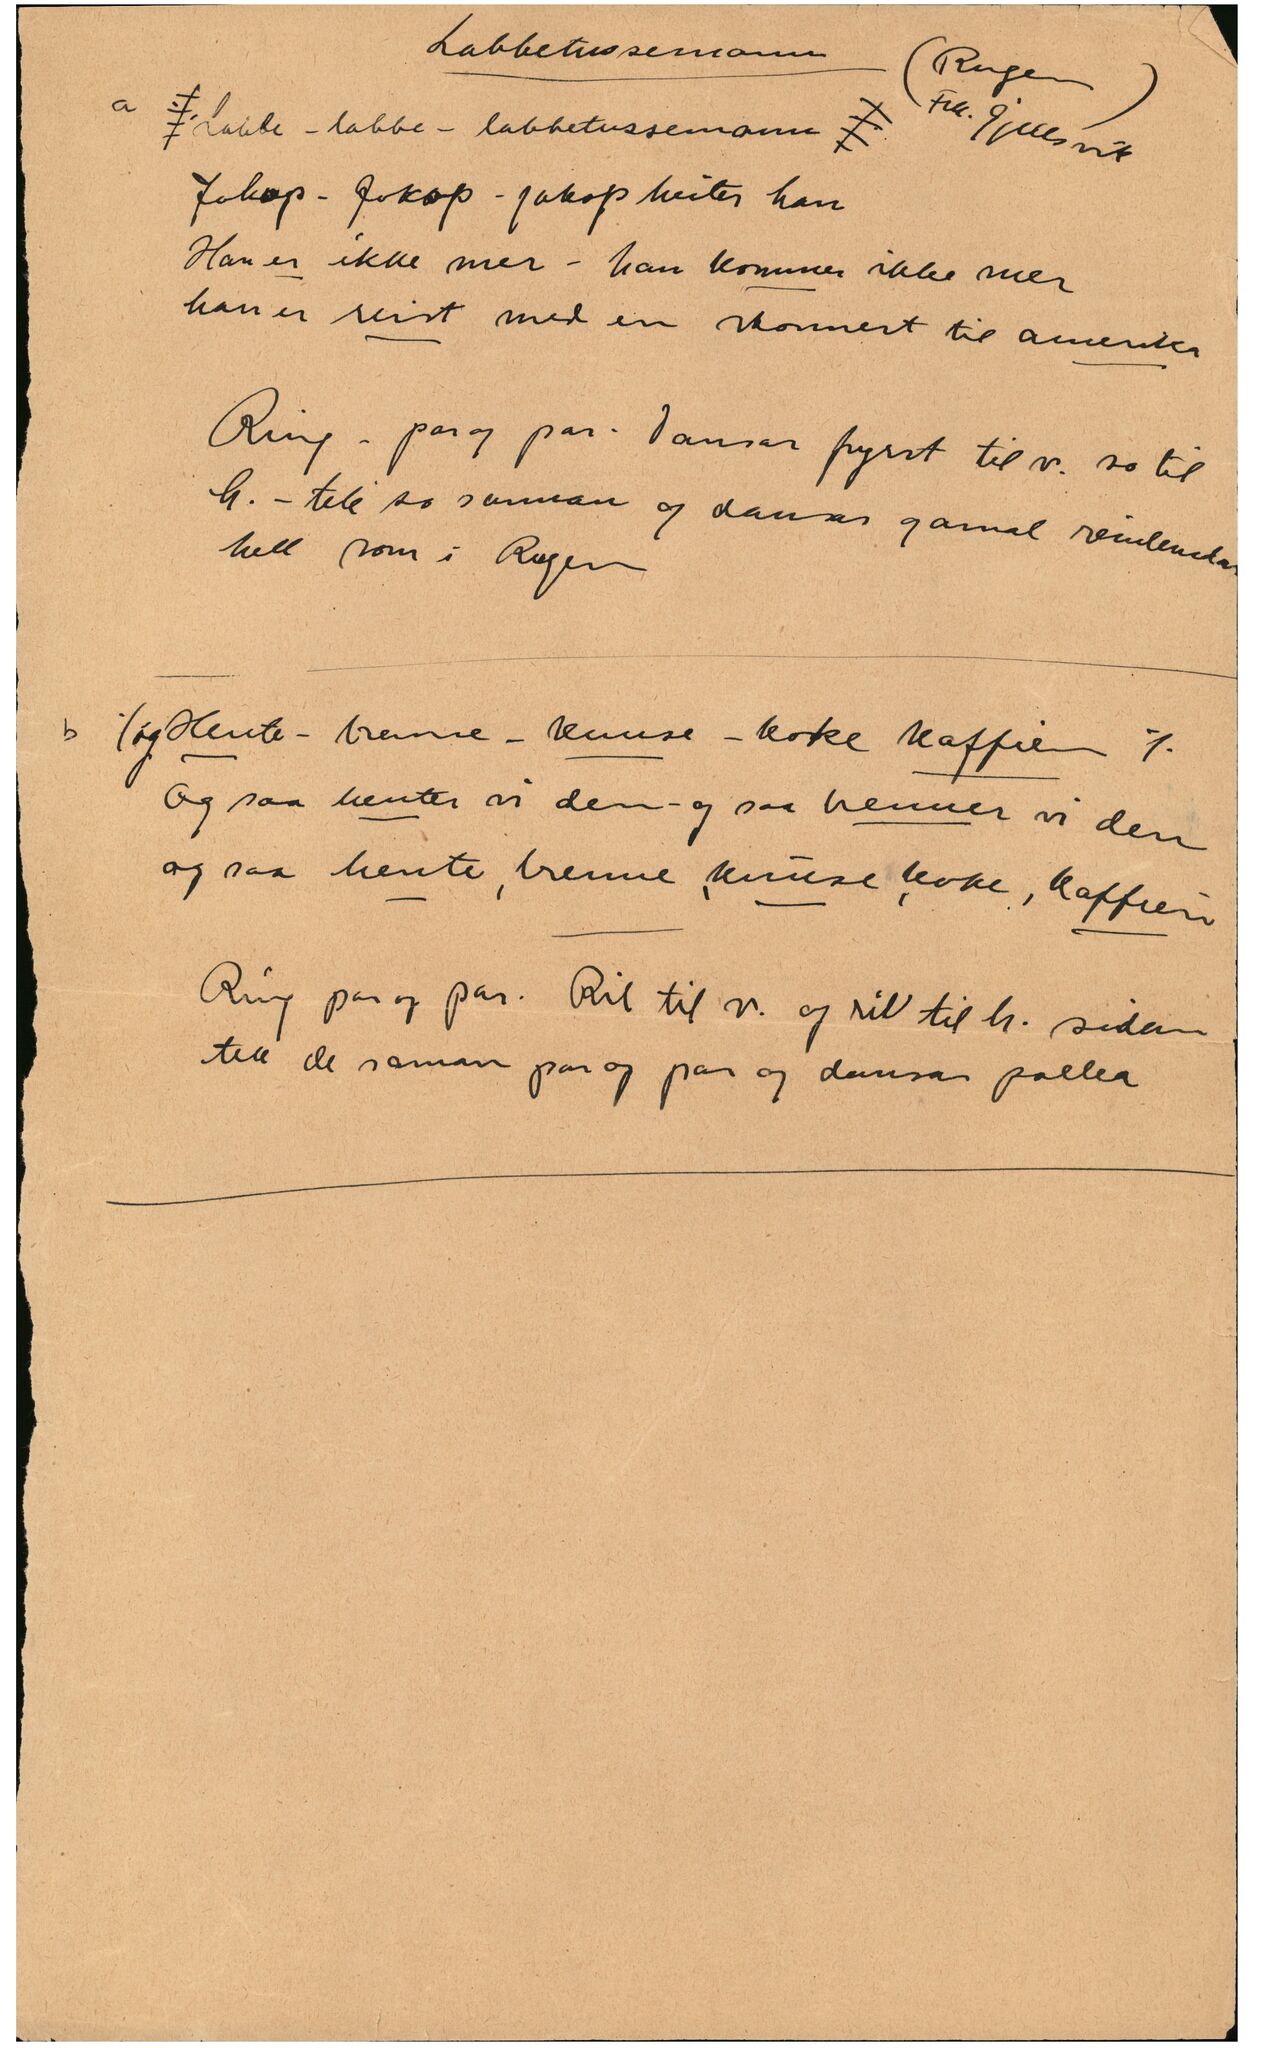 Labbetussemann
(Rugen)
Frk. Gjellsvik
a Labbe - labbe - labbetussemann
Jakop - Jakop - jakop heiter han
Han er ikke mer - han kommer ikke mer
han er reist med en skonnert til amerika
Ring - par og par. Dansar fyrst til v. so til
h. - tek so saman og dansar gamal reinlendar
hell som i Rugen
b ·/. og Hente - brenne - knuse - koke kaffien ·/.
Og saa henter vi den - og saa brenner vi den
og saa hente, brenne, knuse, koke, kaffien
Ring par og par. Ril til v. og ril til h. sidan
tek de saman par og par og dansar polka